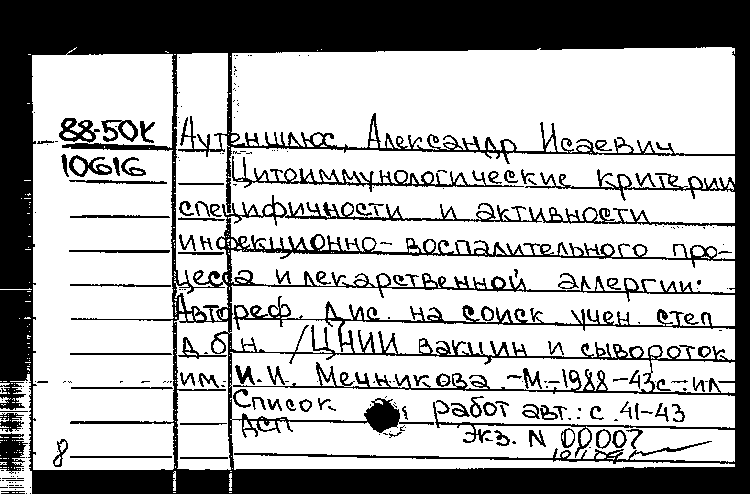 88-50К Аутеншлюс, Александр Исаевич
10616 Цитоиммунологические критерии
специфичности и активности
инфекционно-воспалительного про-
цесса и лекарственной аллергии:
Автореф. дис. на соиск учен. степ
д.б.н. /ЦНИИ вакцин и сывороток
им. И.И. Мечникова.-М.,-1988-43с-ил
Список работ авт.: с. 41-43
ДСП Экз. N 00007
8